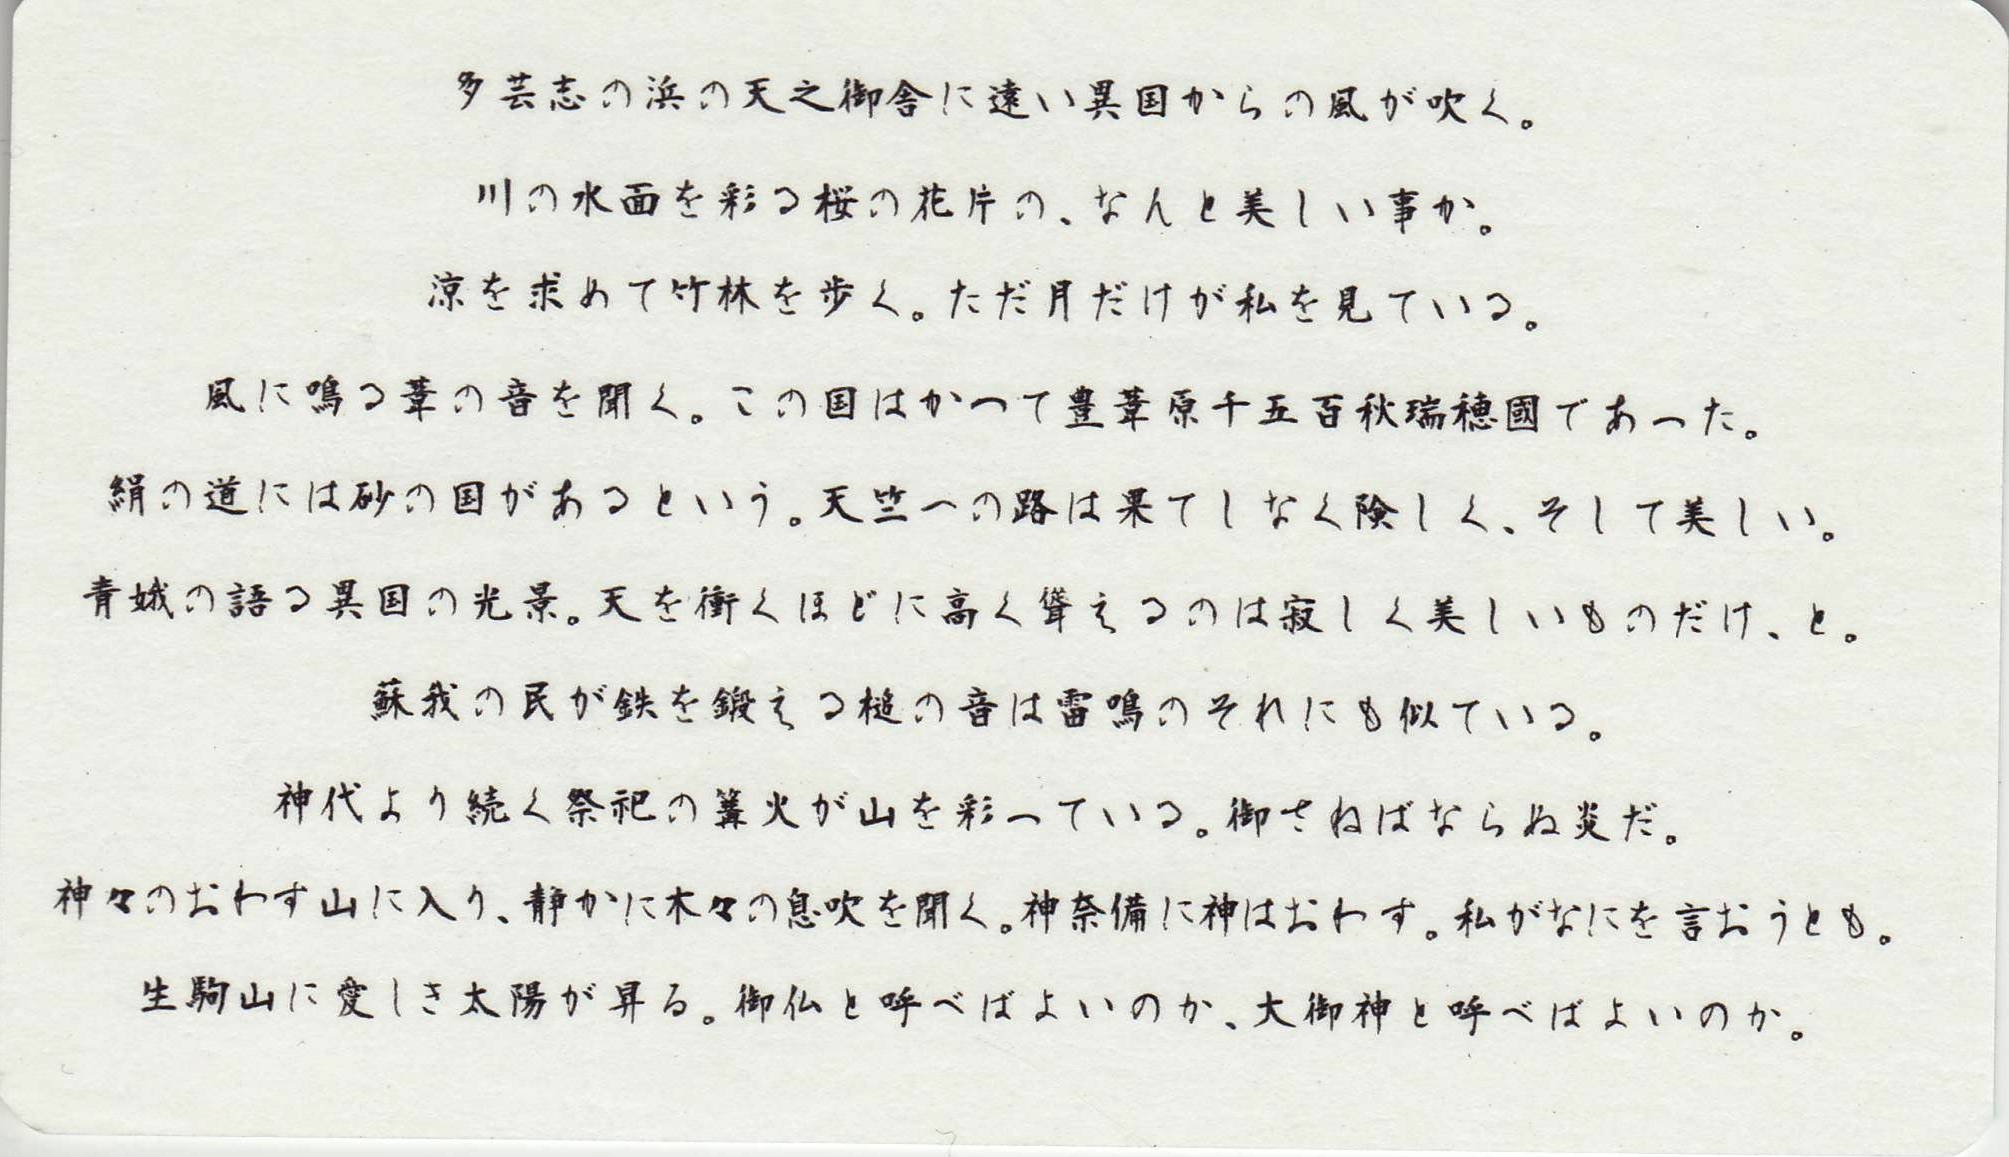 多芸志の浜の天之御舎に遠い異国からの風が吹く。
川の水面を彩る桜の花片の、なんと美しい事か。
涼を求めて竹林を歩く。ただ月だけが私を見ている。
風に鳴る葦の音を聞く。この国はかつて豊葦原千五百秋瑞穂國であった。
絹の道には砂の国があるという。天竺への路は果てしなく険しく、そして美しい。
青娥の語る異国の光景。天を衝くほどに高く聳えるのは寂しく美しいものだけ、と。
蘇我の民が鉄を鍛える槌の音は雷鳴のそれにも似ている。
神代より続く祭祀の篝火が山を彩っている。御さねばならぬ炎だ。
神々のおわす山に入り、静かに木々の息吹を聞く。神奈備に神はおわす。私がなにを言おうとも。
生駒山に愛しき太陽が昇る。御仏と呼べばよいのか、大御神と呼べばよいのか。